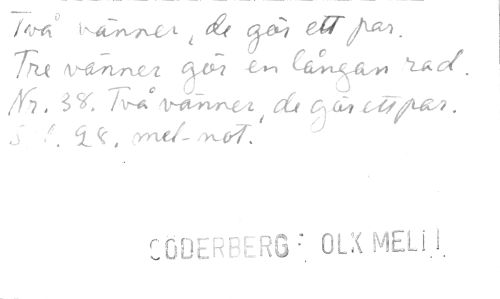 Två vänner, de gör ett par.
Tre vänner gör en långan rad.
Nr. 38. Två vänner, de gör ett par.
28. mel-not.
SÖDERBERG: OLK MEL